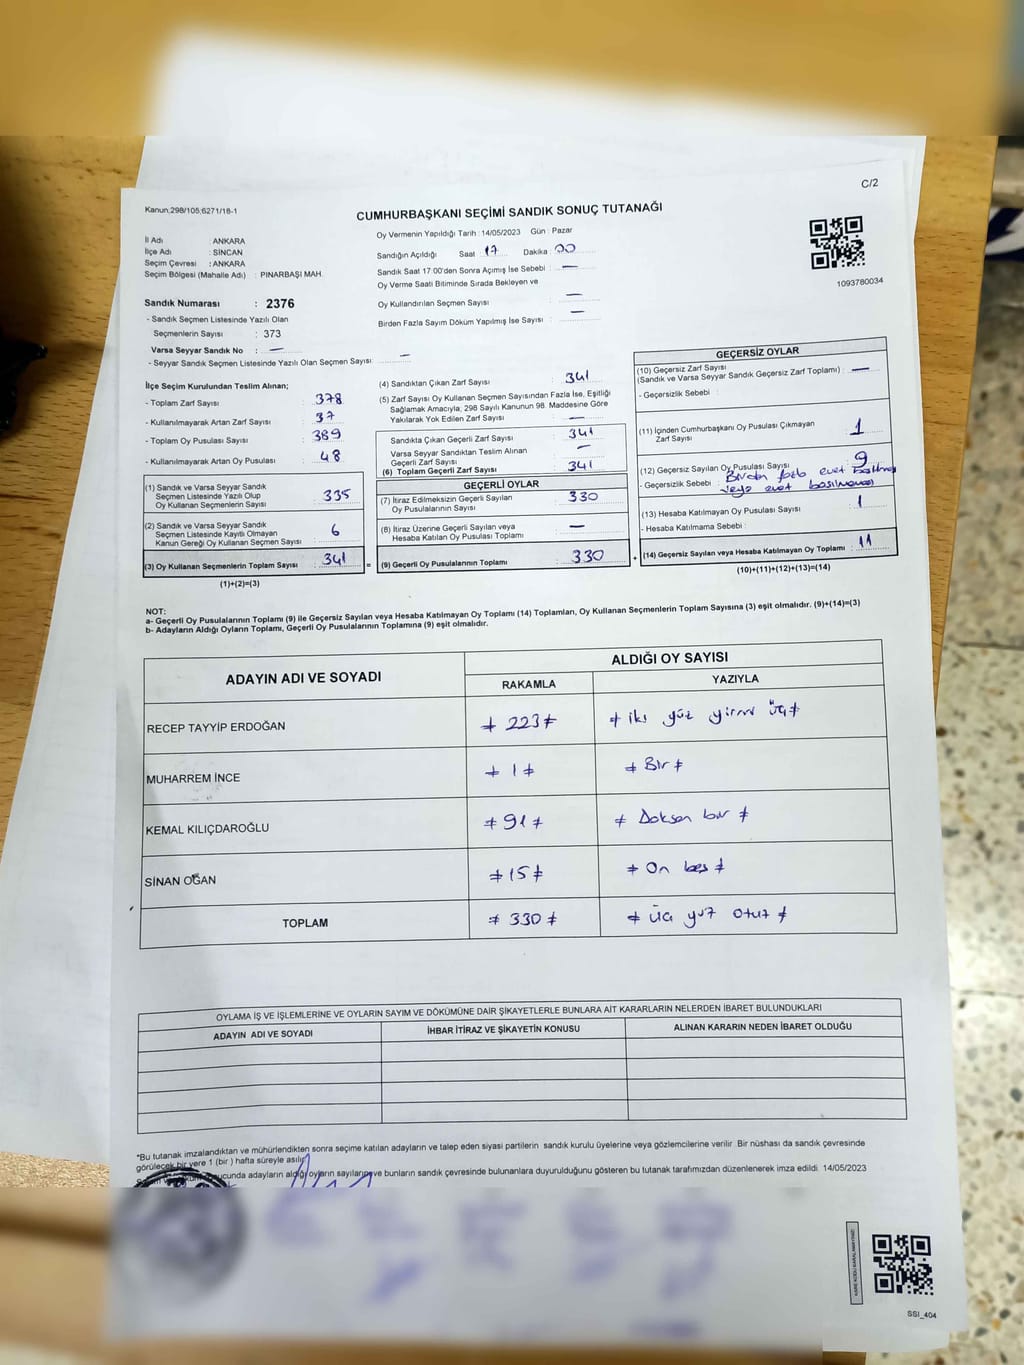 C/2
Kanun;298/105;6271/18-1
CUMHURBAŞKANI SEÇİMİ SANDIK SONUÇ TUTANAĞI
İl Adı : ANKARA
İlçe Adı : SİNCAN
Seçim Çevresi : ANKARA
Seçim Bölgesi (Mahalle Adı) : PINARBAŞI MAH.
Oy Vermenin Yapıldığı Tarih : 14/05/2023 Gün : Pazar
Sandığın Açıldığı Saat 17 Dakika 00
Sandık Saat 17:00'den Sonra Açımış İse Sebebi : —
Oy Verme Saati Bitiminde Sırada Bekleyen ve
Oy Kullandırılan Seçmen Sayısı : —
Birden Fazla Sayım Döküm Yapılmış İse Sayısı : —
1093780034
Sandık Numarası : 2376
- Sandık Seçmen Listesinde Yazılı Olan
Seçmenlerin Sayısı : 373
Varsa Seyyar Sandık No : —
- Seyyar Sandık Seçmen Listesinde Yazılı Olan Seçmen Sayısı: —
İlçe Seçim Kurulundan Teslim Alınan;
- Toplam Zarf Sayısı : 378
- Kullanılmayarak Artan Zarf Sayısı : 37
- Toplam Oy Pusulası Sayısı : 389
- Kullanılmayarak Artan Oy Pusulası : 48
(1) Sandık ve Varsa Seyyar Sandık
Seçmen Listesinde Yazılı Olup
Oy Kullanan Seçmenlerin Sayısı : 335
(2) Sandık ve Varsa Seyyar Sandık
Seçmen Listesinde Kayıtlı Olmayan
Kanun Gereği Oy Kullanan Seçmen Sayısı : 6
(3) Oy Kullanan Seçmenlerin Toplam Sayısı : 341
(1)+(2)=(3)
(4) Sandıktan Çıkan Zarf Sayısı : 341
(5) Zarf Sayısı Oy Kullanan Seçmen Sayısından Fazla İse, Eşitliği
Sağlamak Amacıyla; 298 Sayılı Kanunun 98. Maddesine Göre
Yakılarak Yok Edilen Zarf Sayısı : —
Sandıkta Çıkan Geçerli Zarf Sayısı : 341
Varsa Seyyar Sandıktan Teslim Alınan
Geçerli Zarf Sayısı : —
(6) Toplam Geçerli Zarf Sayısı : 341
GEÇERLİ OYLAR
(7) İtiraz Edilmeksizin Geçerli Sayılan
Oy Pusulalarının Sayısı : 330
(8) İtiraz Üzerine Geçerli Sayılan veya
Hesaba Katılan Oy Pusulası Toplamı : —
= (9) Geçerli Oy Pusulalarının Toplamı : 330 +
GEÇERSİZ OYLAR
(10) Geçersiz Zarf Sayısı
(Sandık ve Varsa Seyyar Sandık Geçersiz Zarf Toplamı) : —
- Geçersizlik Sebebi :
(11) İçinden Cumhurbaşkanı Oy Pusulası Çıkmayan
Zarf Sayısı : 1
(12) Geçersiz Sayılan Oy Pusulası Sayısı : 9
- Geçersizlik Sebebi : Birden fazla evet basılması
veya evet basılmaması
(13) Hesaba Katılmayan Oy Pusulası Sayısı : 1
- Hesaba Katılmama Sebebi :
(14) Geçersiz Sayılan veya Hesaba Katılmayan Oy Toplamı : 11
(10)+(11)+(12)+(13)=(14)
NOT:
a- Geçerli Oy Pusulalarının Toplamı (9) ile Geçersiz Sayılan veya Hesaba Katılmayan Oy Toplamı (14) Toplamları, Oy Kullanan Seçmenlerin Toplam Sayısına (3) eşit olmalıdır. (9)+(14)=(3)
b- Adayların Aldığı Oyların Toplamı, Geçerli Oy Pusulalarının Toplamına (9) eşit olmalıdır.
ADAYIN ADI VE SOYADI
ALDIĞI OY SAYISI
RAKAMLA YAZIYLA
RECEP TAYYİP ERDOĞAN ≠ 223 ≠ ≠ iki yüz yirmi üç ≠
MUHARREM İNCE ≠ 1 ≠ ≠ Bir ≠
KEMAL KILIÇDAROĞLU ≠ 91 ≠ ≠ Doksan bir ≠
SİNAN OĞAN ≠ 15 ≠ ≠ On beş ≠
TOPLAM ≠ 330 ≠ ≠ Üç yüz otuz ≠
OYLAMA İŞ VE İŞLEMLERİNE VE OYLARIN SAYIM VE DÖKÜMÜNE DAİR ŞİKAYETLERLE BUNLARA AİT KARARLARIN NELERDEN İBARET BULUNDUKLARI
ADAYIN ADI VE SOYADI İHBAR İTİRAZ VE ŞİKAYETİN KONUSU ALINAN KARARIN NEDEN İBARET OLDUĞU
*Bu tutanak imzalandıktan ve mühürlendikten sonra seçime katılan adayların ve talep eden siyasi partilerin sandık kurulu üyelerine veya gözlemcilerine verilir. Bir nüshası da sandık çevresinde
görülecek bir yere 1 (bir) hafta süreyle asılır.
ucunda adayların aldığı oyların sayılarını ve bunların sandık çevresinde bulunanlara duyurulduğunu gösteren bu tutanak tarafımızdan düzenlenerek imza edildi. 14/05/2023
SSI_404